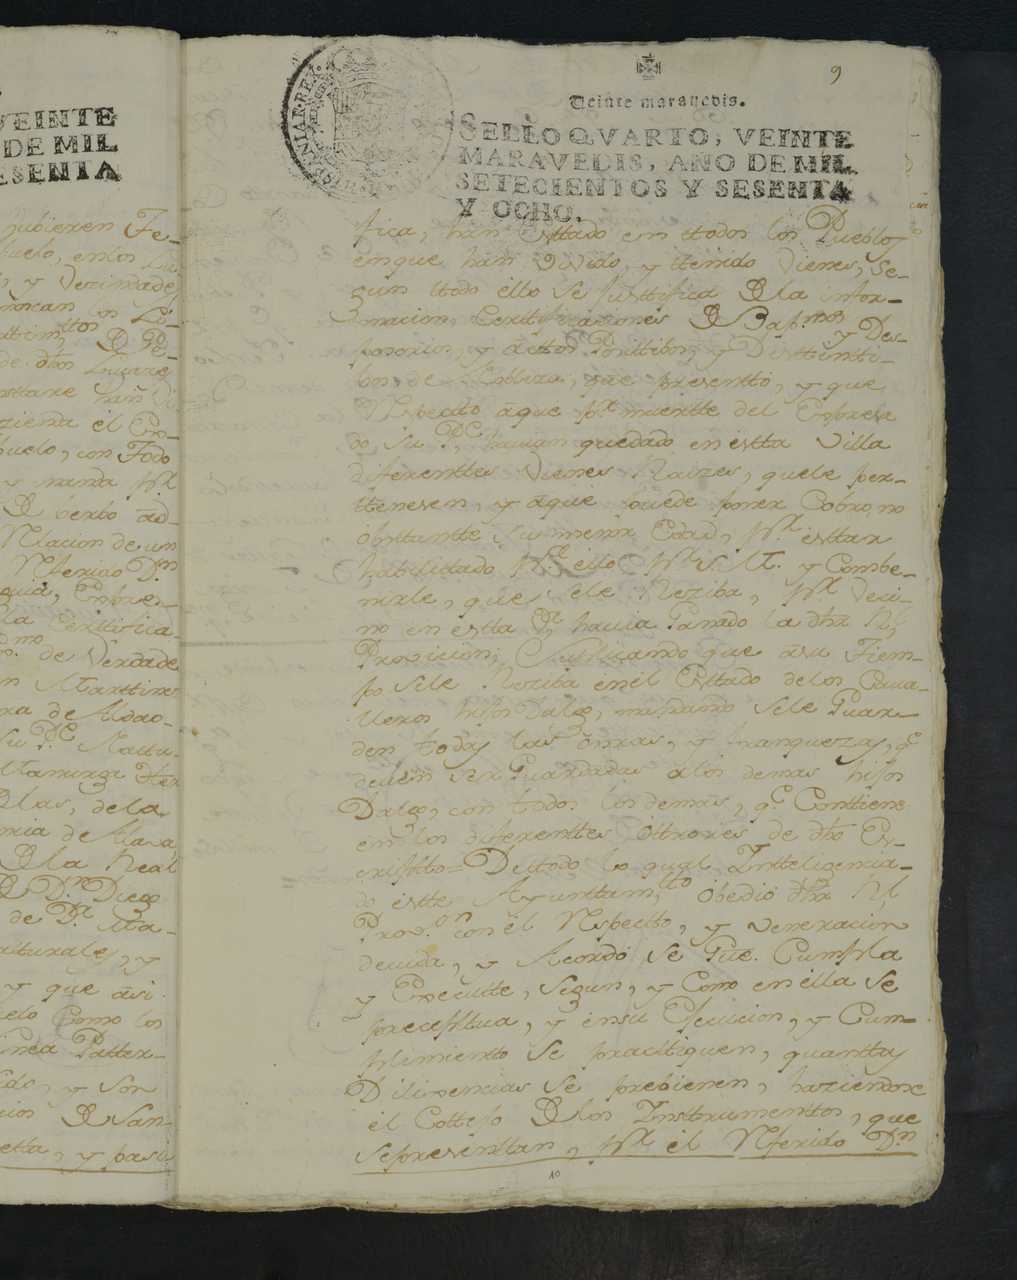 VEINTE
DE MIL
ESENTA
hubieren Fe-
buelo, en los
y Vezindade
de dhos Lugare
buelo, con Todo
y manda pr
Relacion de un
Referido Dn
la Certifica
de Verdade
n Marttine
ra de Aldao-
de la
de Alava
De la Real
Dn Diego
de Da Ma-
aturales, y
y que asi
uelo Como los
inea Patter-
ido, y son
De San-
etta, y pasa
9
Veinte maravedis.
SELLO QVARTO, VEINTE
MARAVEDIS, AÑO DE MIL
SETECIENTOS Y SESENTA
Y OCHO.
HISPANIAR·REX·
fica, han esttado en ttodos los Pueblos
en que han vivido, y ttenido vienes, se-
gun ttodo ello se justtifica De la infor-
macion, Certtificaciones De Bapmos y Des-
posorios, y acttos Posittibos, y Disttinti-
bos de Nobleza, que presentto, y que
Respecto a que pr muertte del Expresa
do su Pe havian quedado en estta Villa
diferenttes Vienes Raizes, que le per-
ttenesen, y a que puede poner Cobro, no
obsttantte su menor Edad, pr esttar
habilitado pa ello pr S. M. y Combe-
nirle, que se le Reziba, pr Veci-
no en estta Va havia Ganado la dha Rl
Provicion, Suplicando que a su Tiem-
po se le Reziba en el Esttado de los Cava-
lleros hijos Dalgo, mandando se le Guar-
den todas las onrras, y franquezas, qe
deven ser Guardadas a los demas hijos
Dalgo, con todo, lo demas, qe Conttiene
en los diferenttes Ottrosies de dho Es-
criptto = De ttodo lo qual Intteligencia-
do estte Ayunttamtto obedecio dha Rl
Provon con el Respectto, y veneracion
devida, y Acordo se Gue. Cumpla
y Executte, segun, y Como en ella se
preceptua, y en su Execucion, y Cum-
plimiento se practtiquen, quanttas
Dilixencias se prebienen, haziendose
el Cottejo De los Insttrumenttos, que
se presenttan, pr el Referido Dn